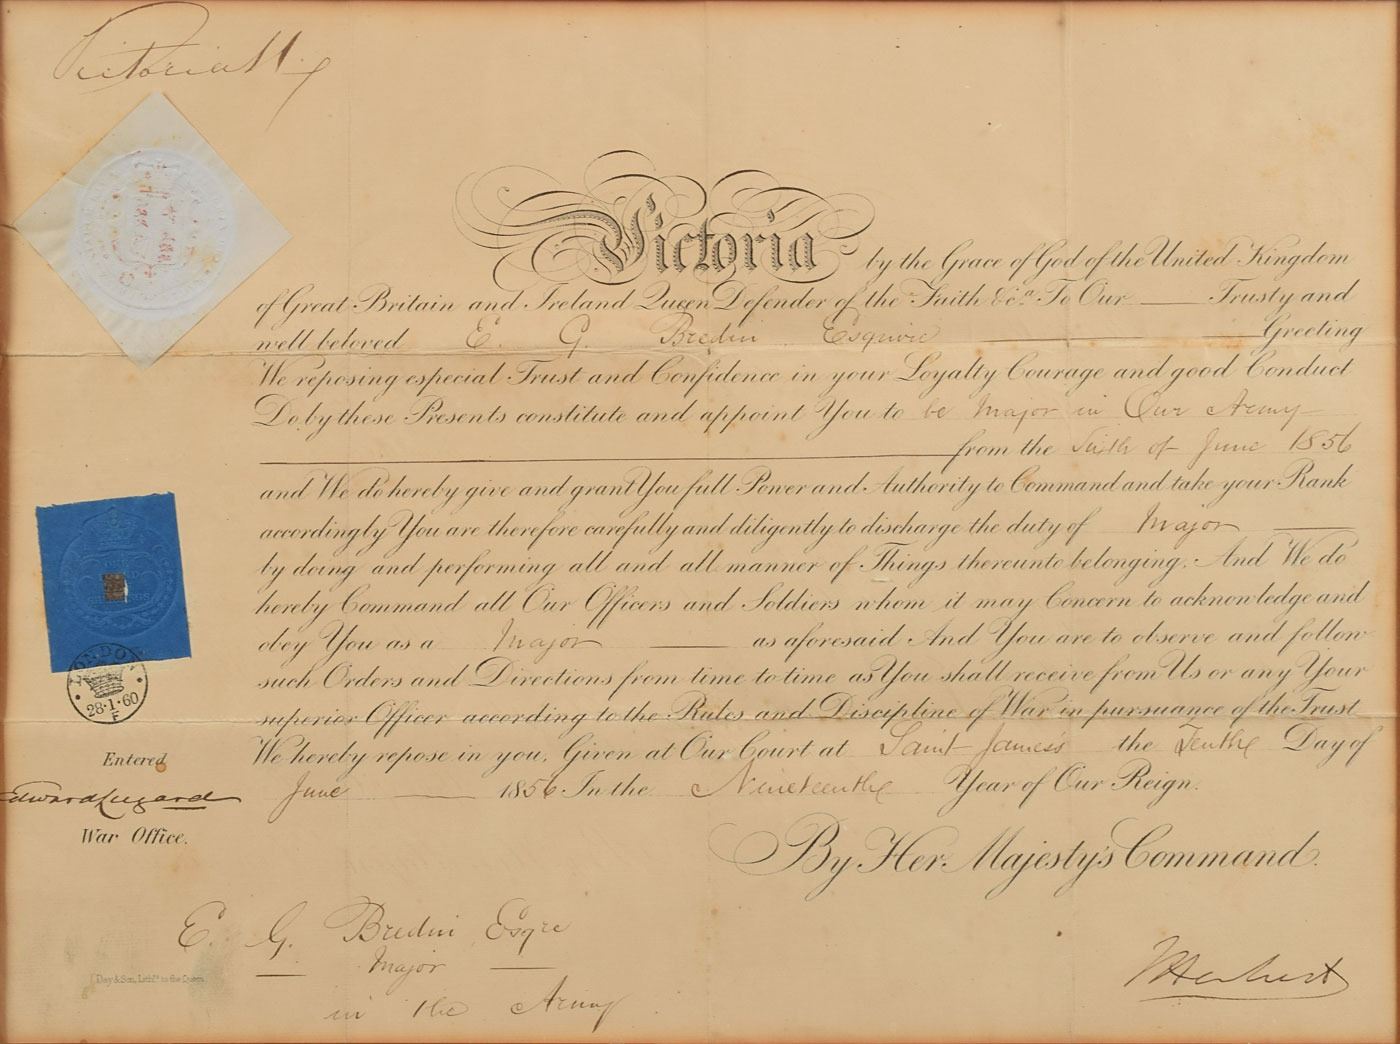 Victoria R.
Victoria by the Grace of God of the United Kingdom
of Great Britain and Ireland Queen Defender of the Faith &c.a To Our Trusty and
well beloved E. G. Bredin Esquire Greeting
We reposing especial Trust and Confidence in your Loyalty Courage and good Conduct
Do by these Presents constitute and appoint You to be Major in Our Army
from the Sixth of June 1856
and We do hereby give and grant You full Power and Authority to Command and take your Rank
accordingly You are therefore carefully and diligently to discharge the duty of Major
by doing and performing all and all manner of Things thereunto belonging. And We do
hereby Command all Our Officers and Soldiers whom it may Concern to acknowledge and
obey You as a Major as aforesaid And You are to observe and follow
such Orders and Directions from time to time as You shall receive from Us or any Your
superior Officer according to the Rules and Discipline of War in pursuance of the Trust
We hereby repose in you. Given at Our Court at Saint James's the Tenth Day of
June 1856 In the Nineteenth Year of Our Reign.
By Her Majesty's Command.
LONDON
28·1·60
F
Entered
Edward Lugard
War Office.
E. G. Bredin Esqre
Major
in the Army
Day & Son, Lithrs to the Queen
Herbert